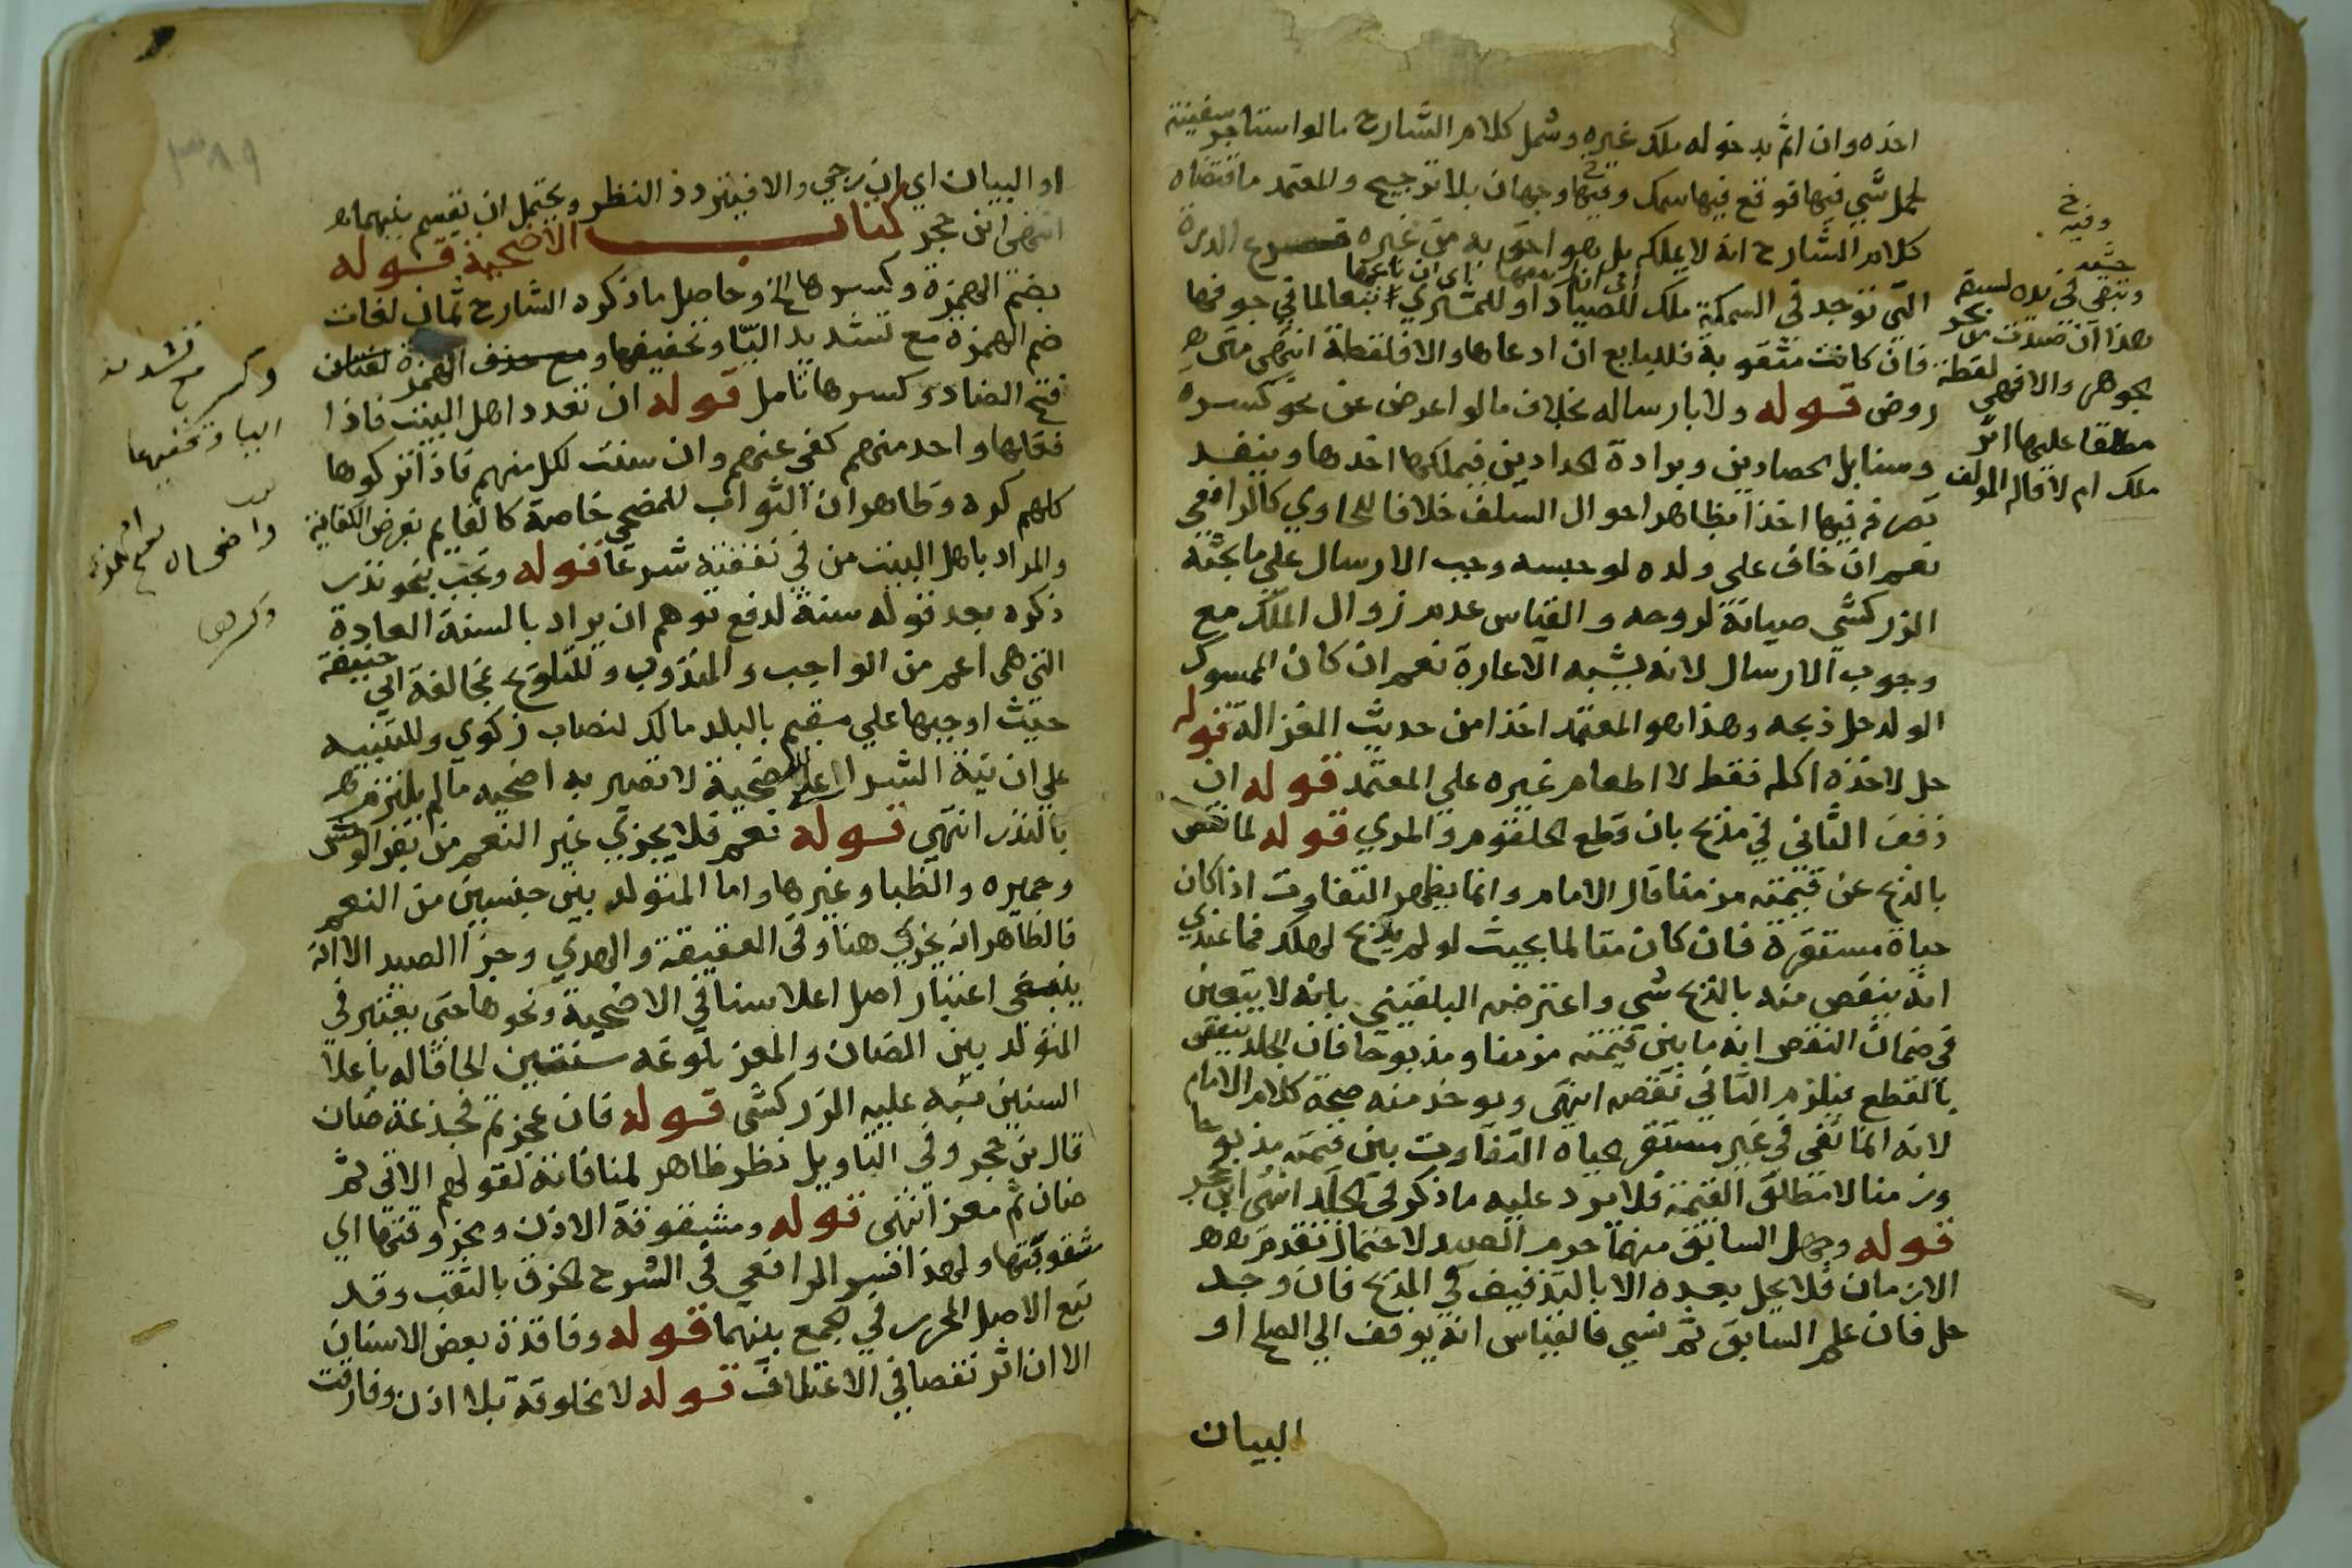 اخذه وان اثم بدخوله ملك غيره وشمل كلام الشارح مالو استاجر سفينة
لحمل شي فيها فوقع فيها سمك وفيها وجهان بلا ترجيح والمعتمد ما اقتضاه
كلام الشارح انه لا يملكه بل هو احق به من غيره الدرة
التي توجد في السمكة ملك للصياد او للمشتري تبعا لها في جوفها
فان كانت مثقوبة فللبايع ان ادعاها والا فلقطة انتهى
روض قوله ولا بارساله بخلاف مالو اعرض عن نحو كسره
وسنابل الحصادين وبرادة الحدادين فيملكها اخذها وينفد
تصرفه فيها اخذا بظاهر احوال السلف خلافا للحاوي كالرافعي
نعم ان خاف على ولده لو حبسه وجب الارسال علي ما بحثه
الزركشي صيانة لروحه والقياس عدم زوال الملك مع
وجوب الارسال لانه يشبه الاعارة نعم ان كان الممسوك
الولد حل ذبحه وهذا هو المعتمد اخذا من حديث الغزالة قوله
حل لاخذه اكله فقط لا اطعام غيره علي المعتمد قوله ان
ذفف الثاني في مذبح بان قطع الحلقوم والمري قوله لما نقص
بالذبح عن قيمته مزمنا قال الامام وانما يظهر التفاوت اذا كان
حياة مستقرة فان كان متالما بحيث لو لم يذبح لهلك فما عندي
انه ينقص منه بالذبح شي واعترض البلقيني بانه لا يتعين
في ضمان النقص انه ما بين قيمته مزمنا ومذبوحا فان الجلد ينقص
بالقطع فيلزم الثاني نقصه انتهى ويوخذ منه صحة كلام الامام
لانه انما نفي في غير مستقر حياه التفاوت بين قيمته مذبوحا
ومزمنا لا مطلق القيمة فلا يرد عليه ما ذكر في الجلد انتهى ابن حجر
قوله وجهل السابق منهما حرم الصيد لاحتمال تقدم
الازمان فلا يحل بعده الا بالتذفيف في المذبح فان وجد
حل فان علم السابق ثم نسي فالقياس انه يوقف الي الصلح او
البيان
وفيه خ
وتبقى في يده لسبقه
هذا ان صيدت من بحر
جوهر والا فهي لقطة
مطلقا عليها اثر
ملك ام لا قاله المولف
٣٨٩
او البيان اي ان رجي والا فيتردد النظر ويحتمل ان يقسم بينهما
انتهى ابن حجر كتاب الاضحية قوله
بضم الهمزة وكسرها الخ وحاصل ما ذكره الشارح ثمان لغات
ضم الهمزة مع تشديد اليا وتخفيفها ومع حذف الهمزة لغتان
فتح الضاد وكسرها تامل قوله ان تعدد اهل البيت فاذا
فعلها واحد منهم كفى عنهم وان سنت لكل منهم فاذا تركوها
كلهم كره وظاهر ان الثواب للمضحي خاصة كالقايم بفرض الكفاية
والمراد باهل البيت من في نفقته شرعا قوله وتجب بنحو نذر
ذكره بعد قوله سنة لدفع توهم ان يراد بالسنة العادة
التي هي اعم من الواجب والمندوب وللتلويح بمخالفة ابي حنيفة
حيث اوجبها علي مقيم بالبلد مالك لنصاب زكوي وللتنبيه
علي ان نية الشرا للاضحية لا تصير به اضحيه ما لم يلتزم
بالنذر انتهى قوله نعم فلا يجزي غير النعم من بقر الوحش
وحميره والظبا وغيرها واما المتولد بين جنسين من النعم
فالظاهر انه يجزي هنا وفي العقيقة والهدي وجزا الصيد الا انه
ينبغي اعتبار اعلا سنا في الاضحية ونحوها حتى يعتبر في
المتولد بين الضان والمعز بلوغه سنتين الحاقا له باعلا
السنين نبه عليه الزركشى قوله فان عجزتم فجذعة ضان
قال بن حجر وفي التاويل نظر ظاهر لمنافاته لقولهم الاتي ثم
ضان ثم معز انتهى قوله ومشقوقة الاذن ويجزو قتها اي
مثقوبتها ولهذا فسر الرافعي في الشرح الخرق بالثقب وقد
تبع الاصل المحرر في الجمع بينهما قوله وفاقدة بعض الاسنان
الا ان اثر نقصا في الاعتلاف قوله لا مخلوقة بلا اذن وفارقت
وكسر مع تشديد
اليا وتخفيفها
واضحاه بفتح الهمزة
وكسرها